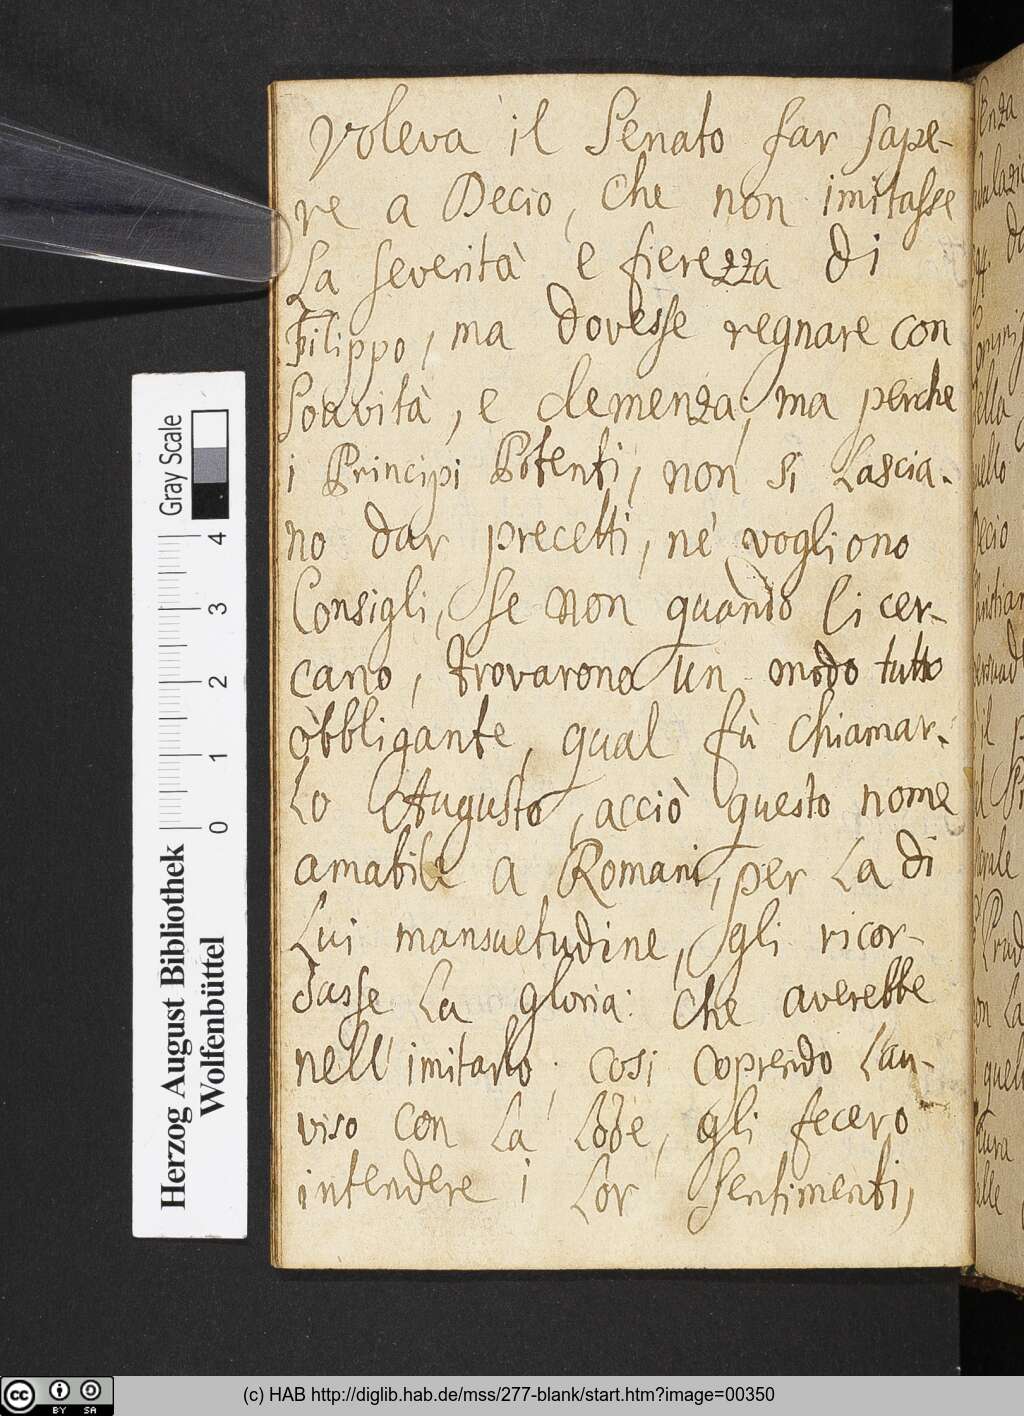 Voleva il Senato far sape-
re a Decio, che non imitasse
La severità e fierezza di
Filippo, ma dovesse regnare con
Soavità, e clemenza; ma perche
i Principi Potenti, non si Lascia-
no dar precetti, nè vogliono
Consigli, se non quando li cer-
cano, trovarono un modo tutto
obbligante, qual fù chiamar-
Lo Augusto, acciò questo nome
amabile a Romani, per La di
Lui mansuetudine, gli ricor-
dasse La gloria: che averebbe
nell' imitarlo; cosi coprendo L'au-
viso con La Lode, gli fecero
intendere i Lor sentimenti,
Gray Scale
0 1 2 3 4
Herzog August Bibliothek
Wolfenbüttel
cc BY SA
(c) HAB http://diglib.hab.de/mss/277-blank/start.htm?image=00350